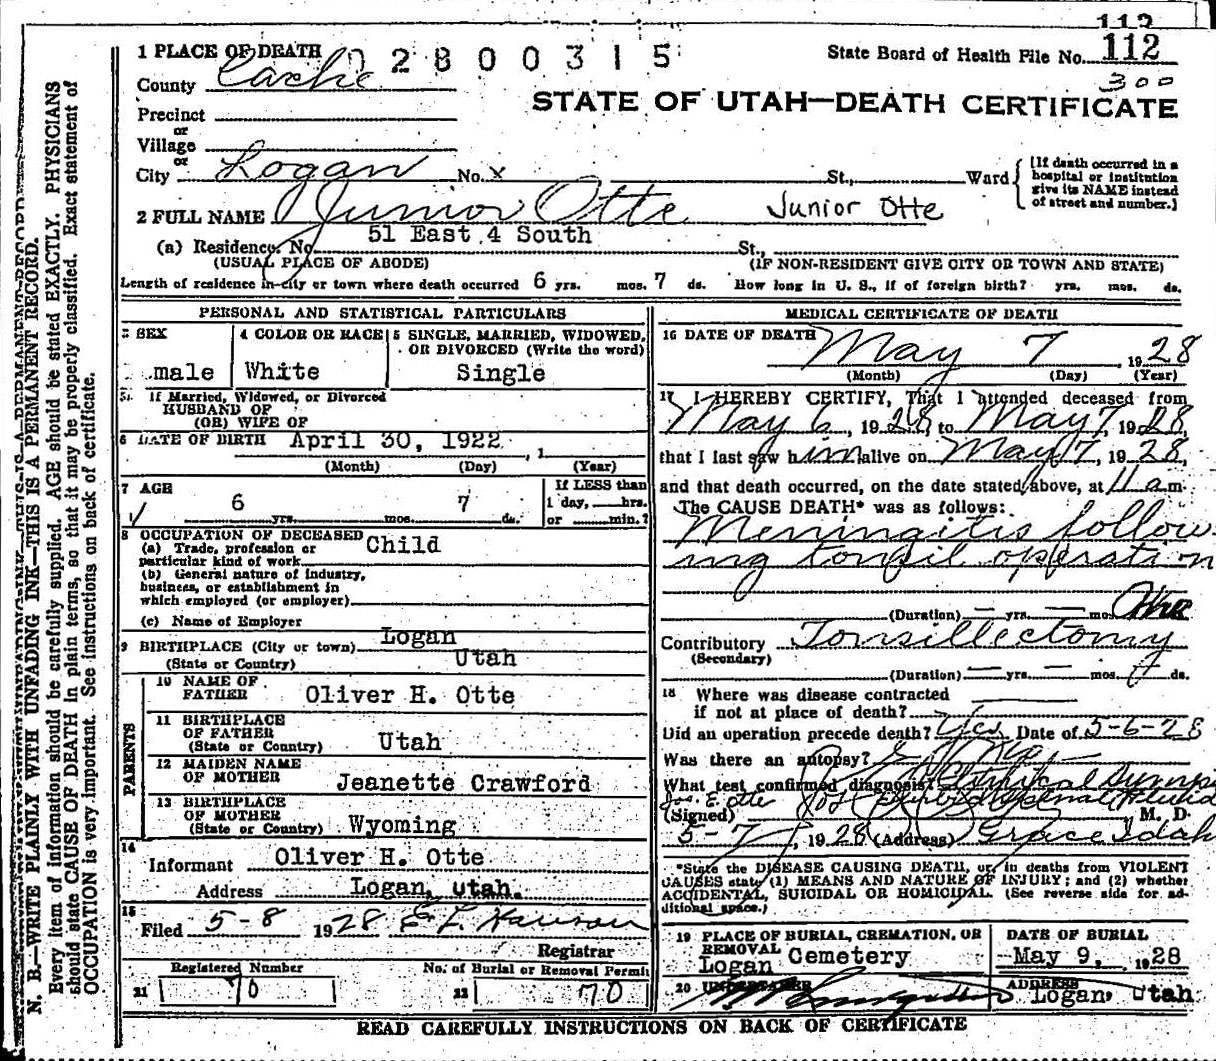 112
1 PLACE OF DEATH 2 8 0 0 3 1 5 State Board of Health File No. 112
County Cache 300
STATE OF UTAH—DEATH CERTIFICATE
Precinct
or
Village
or
City Logan No. x St., Ward {[If death occurred in a hospital or institution give its NAME instead of street and number.]
2 FULL NAME Junior Otte Junior Otte
(a) Residence. No. 51 East 4 South St.,
(USUAL PLACE OF ABODE) (IF NON-RESIDENT GIVE CITY OR TOWN AND STATE)
Length of residence in city or town where death occurred 6 yrs. mos. 7 ds. How long in U. S., if of foreign birth? yrs. mos. ds.
PERSONAL AND STATISTICAL PARTICULARS
3 SEX
male
4 COLOR OR RACE
White
5 SINGLE, MARRIED, WIDOWED,
OR DIVORCED (Write the word)
Single
5a If Married, Widowed, or Divorced
HUSBAND OF
(OR) WIFE OF
6 DATE OF BIRTH April 30, 1922, 1
(Month) (Day) (Year)
7 AGE
6 yrs. mos. 7 ds.
If LESS than
1 day, hrs.
or min.?
8 OCCUPATION OF DECEASED
(a) Trade, profession or
particular kind of work Child
(b) General nature of industry,
business, or establishment in
which employed (or employer)
(c) Name of Employer
9 BIRTHPLACE (City or town) Logan
(State or Country) Utah
PARENTS
10 NAME OF
FATHER Oliver H. Otte
11 BIRTHPLACE
OF FATHER
(State or Country) Utah
12 MAIDEN NAME
OF MOTHER Jeanette Crawford
13 BIRTHPLACE
OF MOTHER
(State or Country) Wyoming
14
Informant Oliver H. Otte
Address Logan, utah.
15
Filed 5-8 1928 E L Hanson
Registrar
Registered Number
21 70
No. of Burial or Removal Permit
22 70
MEDICAL CERTIFICATE OF DEATH
16 DATE OF DEATH May 7 1928
(Month) (Day) (Year)
17 I HEREBY CERTIFY, That I attended deceased from
May 6, 1928, to May 7, 1928,
that I last saw him alive on May 7, 1928,
and that death occurred, on the date stated above, at 11 a m.
The CAUSE DEATH* was as follows:
Meningitis follow
ing tonsil operation
(Duration) — yrs. — mos.
Contributory Tonsillectomy
(Secondary)
(Duration) — yrs. — mos. 1 ds.
18 Where was disease contracted
if not at place of death?
Did an operation precede death? Yes Date of 5-6-28
Was there an autopsy?
What test confirmed diagnosis?
Jos. E. Otte Spinal Fluid
(Signed) M. D.
5-7, 1928 (Address) Grace Idah
*State the DISEASE CAUSING DEATH, or, in deaths from VIOLENT
CAUSES state (1) MEANS AND NATURE OF INJURY; and (2) whether
ACCIDENTAL, SUICIDAL OR HOMICIDAL. (See reverse side for ad-
ditional space.)
19 PLACE OF BURIAL, CREMATION, OR
REMOVAL
Logan Cemetery
DATE OF BURIAL
May 9, 1928
20 UNDERTAKER
ADDRESS
Logan, Utah
READ CAREFULLY INSTRUCTIONS ON BACK OF CERTIFICATE
N. B.—WRITE PLAINLY WITH UNFADING INK—THIS IS A PERMANENT RECORD.
Every item of information should be carefully supplied. AGE should be stated EXACTLY. PHYSICIANS
should state CAUSE OF DEATH in plain terms, so that it may be properly classified. Exact statement of
OCCUPATION is very important. See instructions on back of certificate.